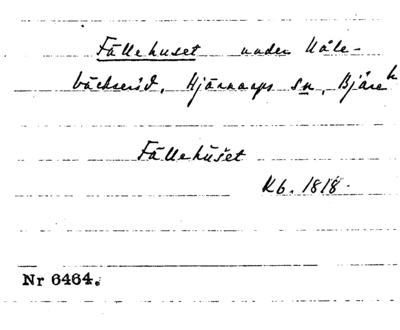 Fällehuset under Kåle-
bäckseröd, Hjärnarps sn, Bjäre h
Fällehuset
Kb. 1818.
Nr 6464.